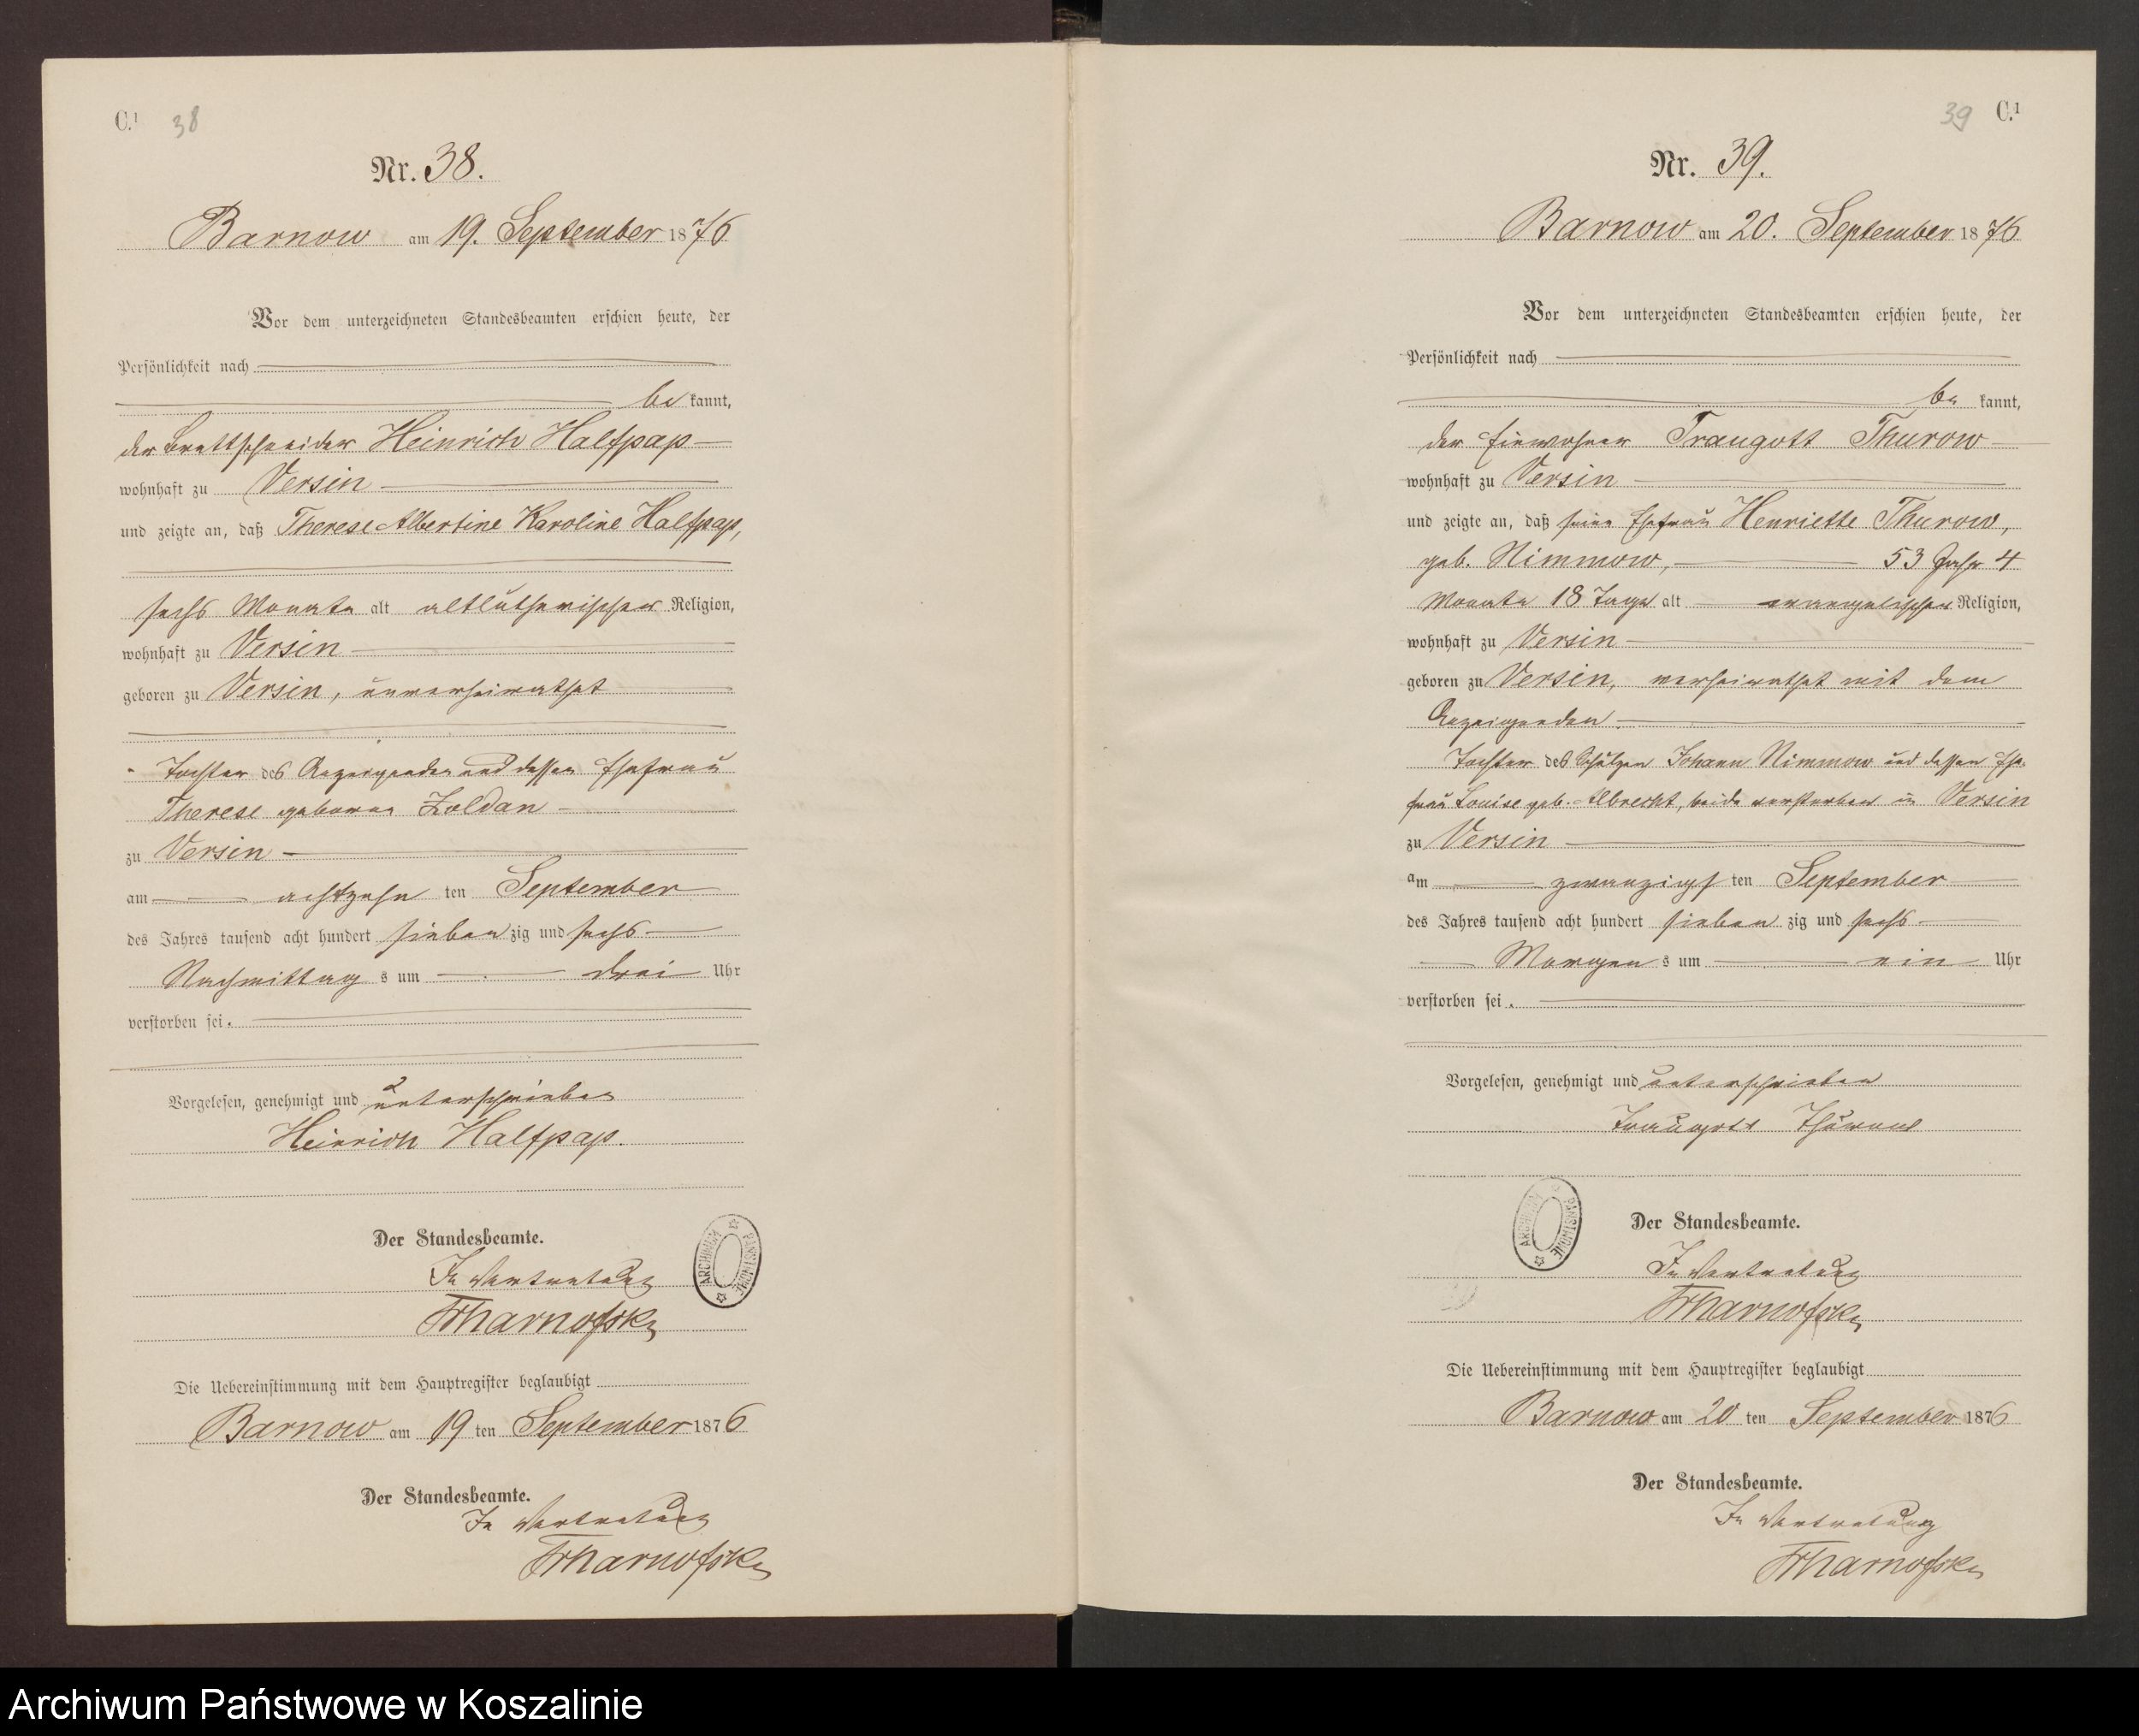 C.¹ 38
Nr. 38.
Barnow am 19. September 1876
Vor dem unterzeichneten Standesbeamten erschien heute, der
Persönlichkeit nach
be kannt,
der Brettschneider Heinrich Halfpap
wohnhaft zu Versin
und zeigte an, daß Therese Albertine Karoline Halfpap,
sechs Monate alt altlutherischer Religion,
wohnhaft zu Versin
geboren zu Versin, unverheirathet
Tochter des Anzeigenden und dessen Ehefrau
Therese geborne Zoldan
zu Versin
am achtzehn ten September
des Jahres tausend acht hundert sieben zig und sechs
Nachmittag s um drei Uhr
verstorben sei.
Vorgelesen, genehmigt und unterschrieben
Heinrich Halfpap.
Der Standesbeamte.
In Vertretung
ARCHIWUM PAŃSTWOWE
Die Uebereinstimmung mit dem Hauptregister beglaubigt
Barnow am 19 ten September 1876
Der Standesbeamte.
In Vertretung
39 C.¹
Nr. 39.
Barnow am 20. September 1876
Vor dem unterzeichneten Standesbeamten erschien heute, der
Persönlichkeit nach
be kannt,
der Einwohner Traugott Thurow
wohnhaft zu Versin
und zeigte an, daß seine Ehefrau Henriette Thurow,
geb. Nimmow, 53 Jahr 4
Monate 18 Tage alt evangelischer Religion,
wohnhaft zu Versin
geboren zu Versin, verheirathet mit dem
Anzeigenden
Tochter des Schulzen Johann Nimmow und dessen Ehe
frau Louise geb. Albrecht, beide verstorben in Versin
zu Versin
am zwanzigs ten September
des Jahres tausend acht hundert sieben zig und sechs
Morgen s um ein Uhr
verstorben sei.
Vorgelesen, genehmigt und unterschrieben
Traugott Thurow
ARCHIWUM PAŃSTWOWE
Der Standesbeamte.
In Vertretung
Die Uebereinstimmung mit dem Hauptregister beglaubigt
Barnow am 20 ten September 1876
Der Standesbeamte.
In Vertretung
Archiwum Państwowe w Koszalinie